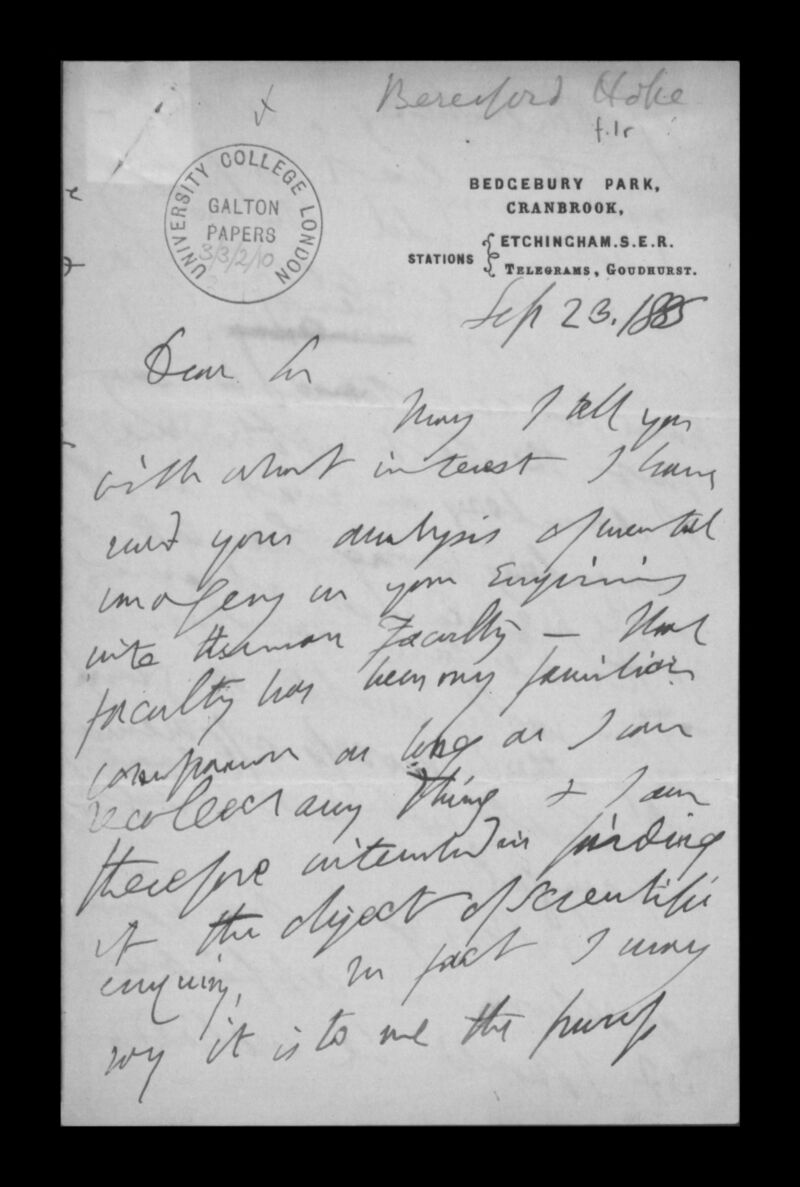 Beresford Hope
f.1r
UNIVERSITY COLLEGE LONDON
GALTON
PAPERS
3/3/2/10
BEDGEBURY PARK,
CRANBROOK,
STATIONS { ETCHINGHAM. S.E.R.
TELEGRAMS, GOUDHURST.
Sep 23. 1885
Dear Sir
May I tell you
with what interest I have
read your analysis of mental
imagery in your Enquiries
into Human Faculty — that
faculty has been my familiar
companion as long as I can
recollect any thing & I am
therefore interested in finding
it the object of scientific
enquiry, In fact I may
say it is to me the